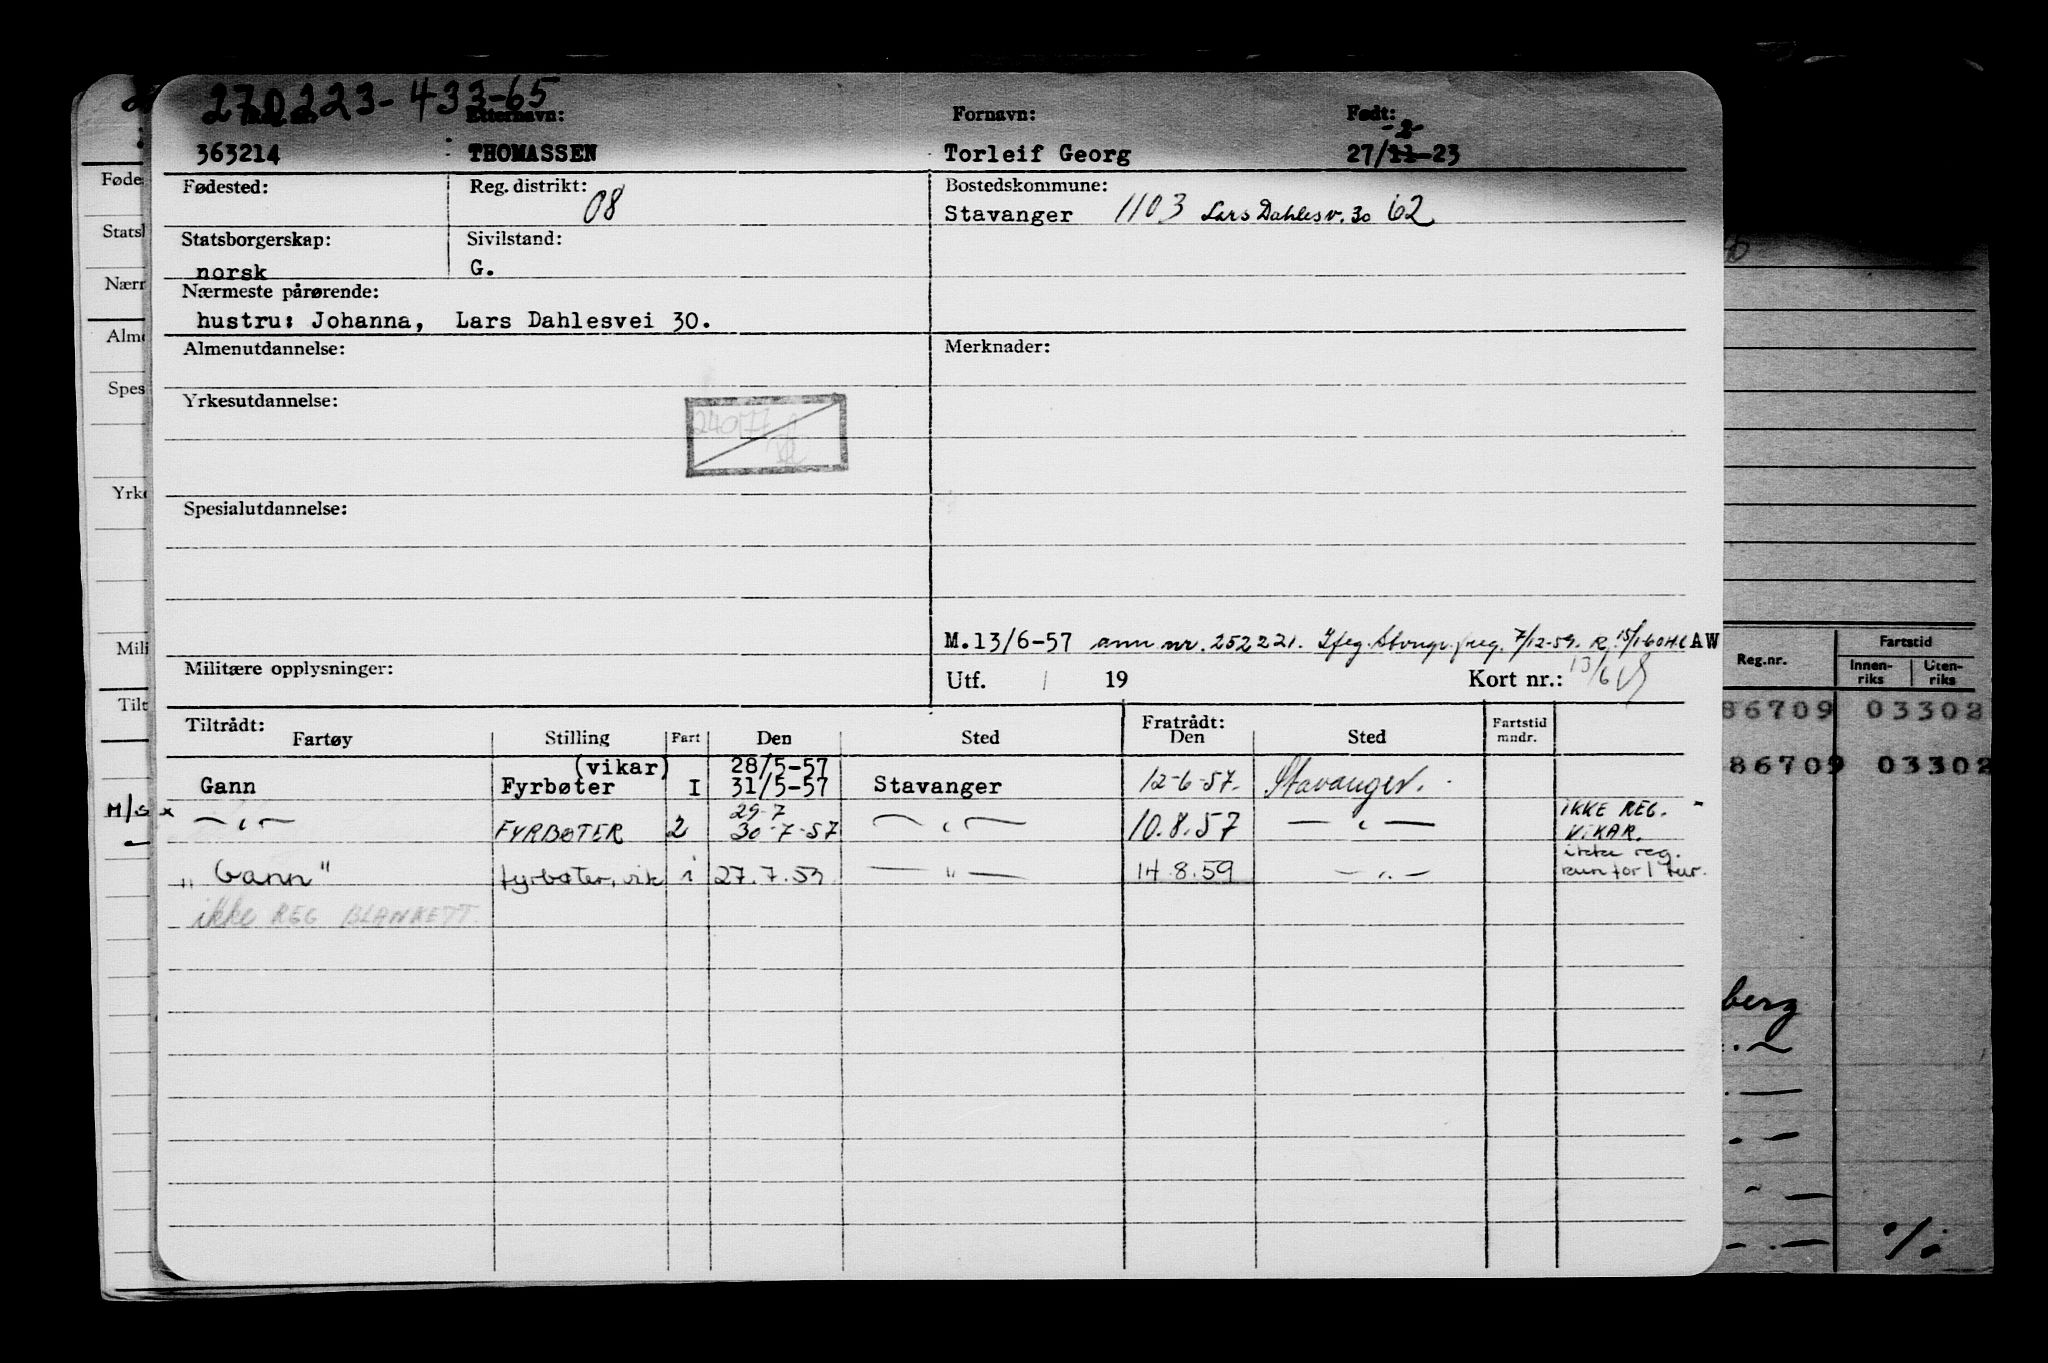 270223-433-65
Etternavn: Fornavn: Født:
-2-
363214 THOMASSEN Torleif Georg 27/11-23
Fødested: Reg. distrikt: 08 Bostedskommune:
Stavanger 1103 Lars Dahlesv. 30 62
Statsborgerskap: Sivilstand:
norsk G.
Nærmeste pårørende:
hustru: Johanna, Lars Dahlesvei 30.
Almenutdannelse: Merknader:
Yrkesutdannelse:
24077
Spesialutdannelse:
M.13/6-57 ann. nr. 252221. 7/12-59. R. 15/1-60 AW
Militære opplysninger: Utf. / 19 Kort nr.: 13/6
Tiltrådt: Fratrådt:
Fartøy Stilling Fart Den Sted Den Sted Fartstid mndr.
(vikar) 28/5-57
Gann Fyrbøter I 31/5-57 Stavanger 12-6-57. Stavanger.
29-7 IKKE REG.
— " — FYRBØTER 2 30-7-57 — " — 10.8.57 — " — VIKAR.
ikke reg.
"Gann" fyrbøter, vik i 27.7.59 — " — 14.8.59 — " — kun for 1 tur.
ikke REG BLANKETT.
Føde
Stats
Nærr
Alme
Spes
Yrke
Mili
Tilt
M/S
Reg.nr. Fartstid
Innen-riks Uten-riks
86709 03302
86709 03302
berg